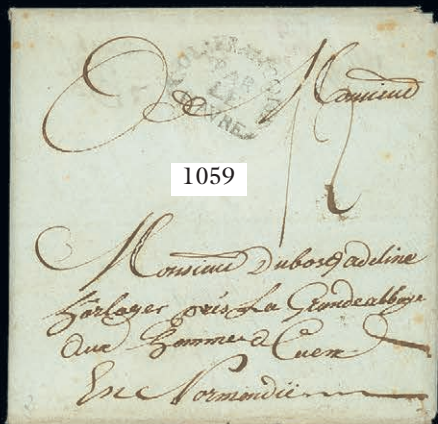 COLONIES PAR
LE HAVRE
Monsieur
1059
Monsieur Dubosq adeline
horloger près La Grande abbaye
aux hommes a Caen
En Normandie